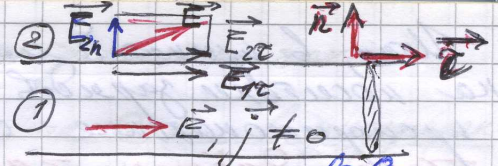 ② E⃗₂ₙ E⃗ E⃗₂τ n⃗
E⃗₁τ τ⃗
① E⃗, j⃗ ≠ 0